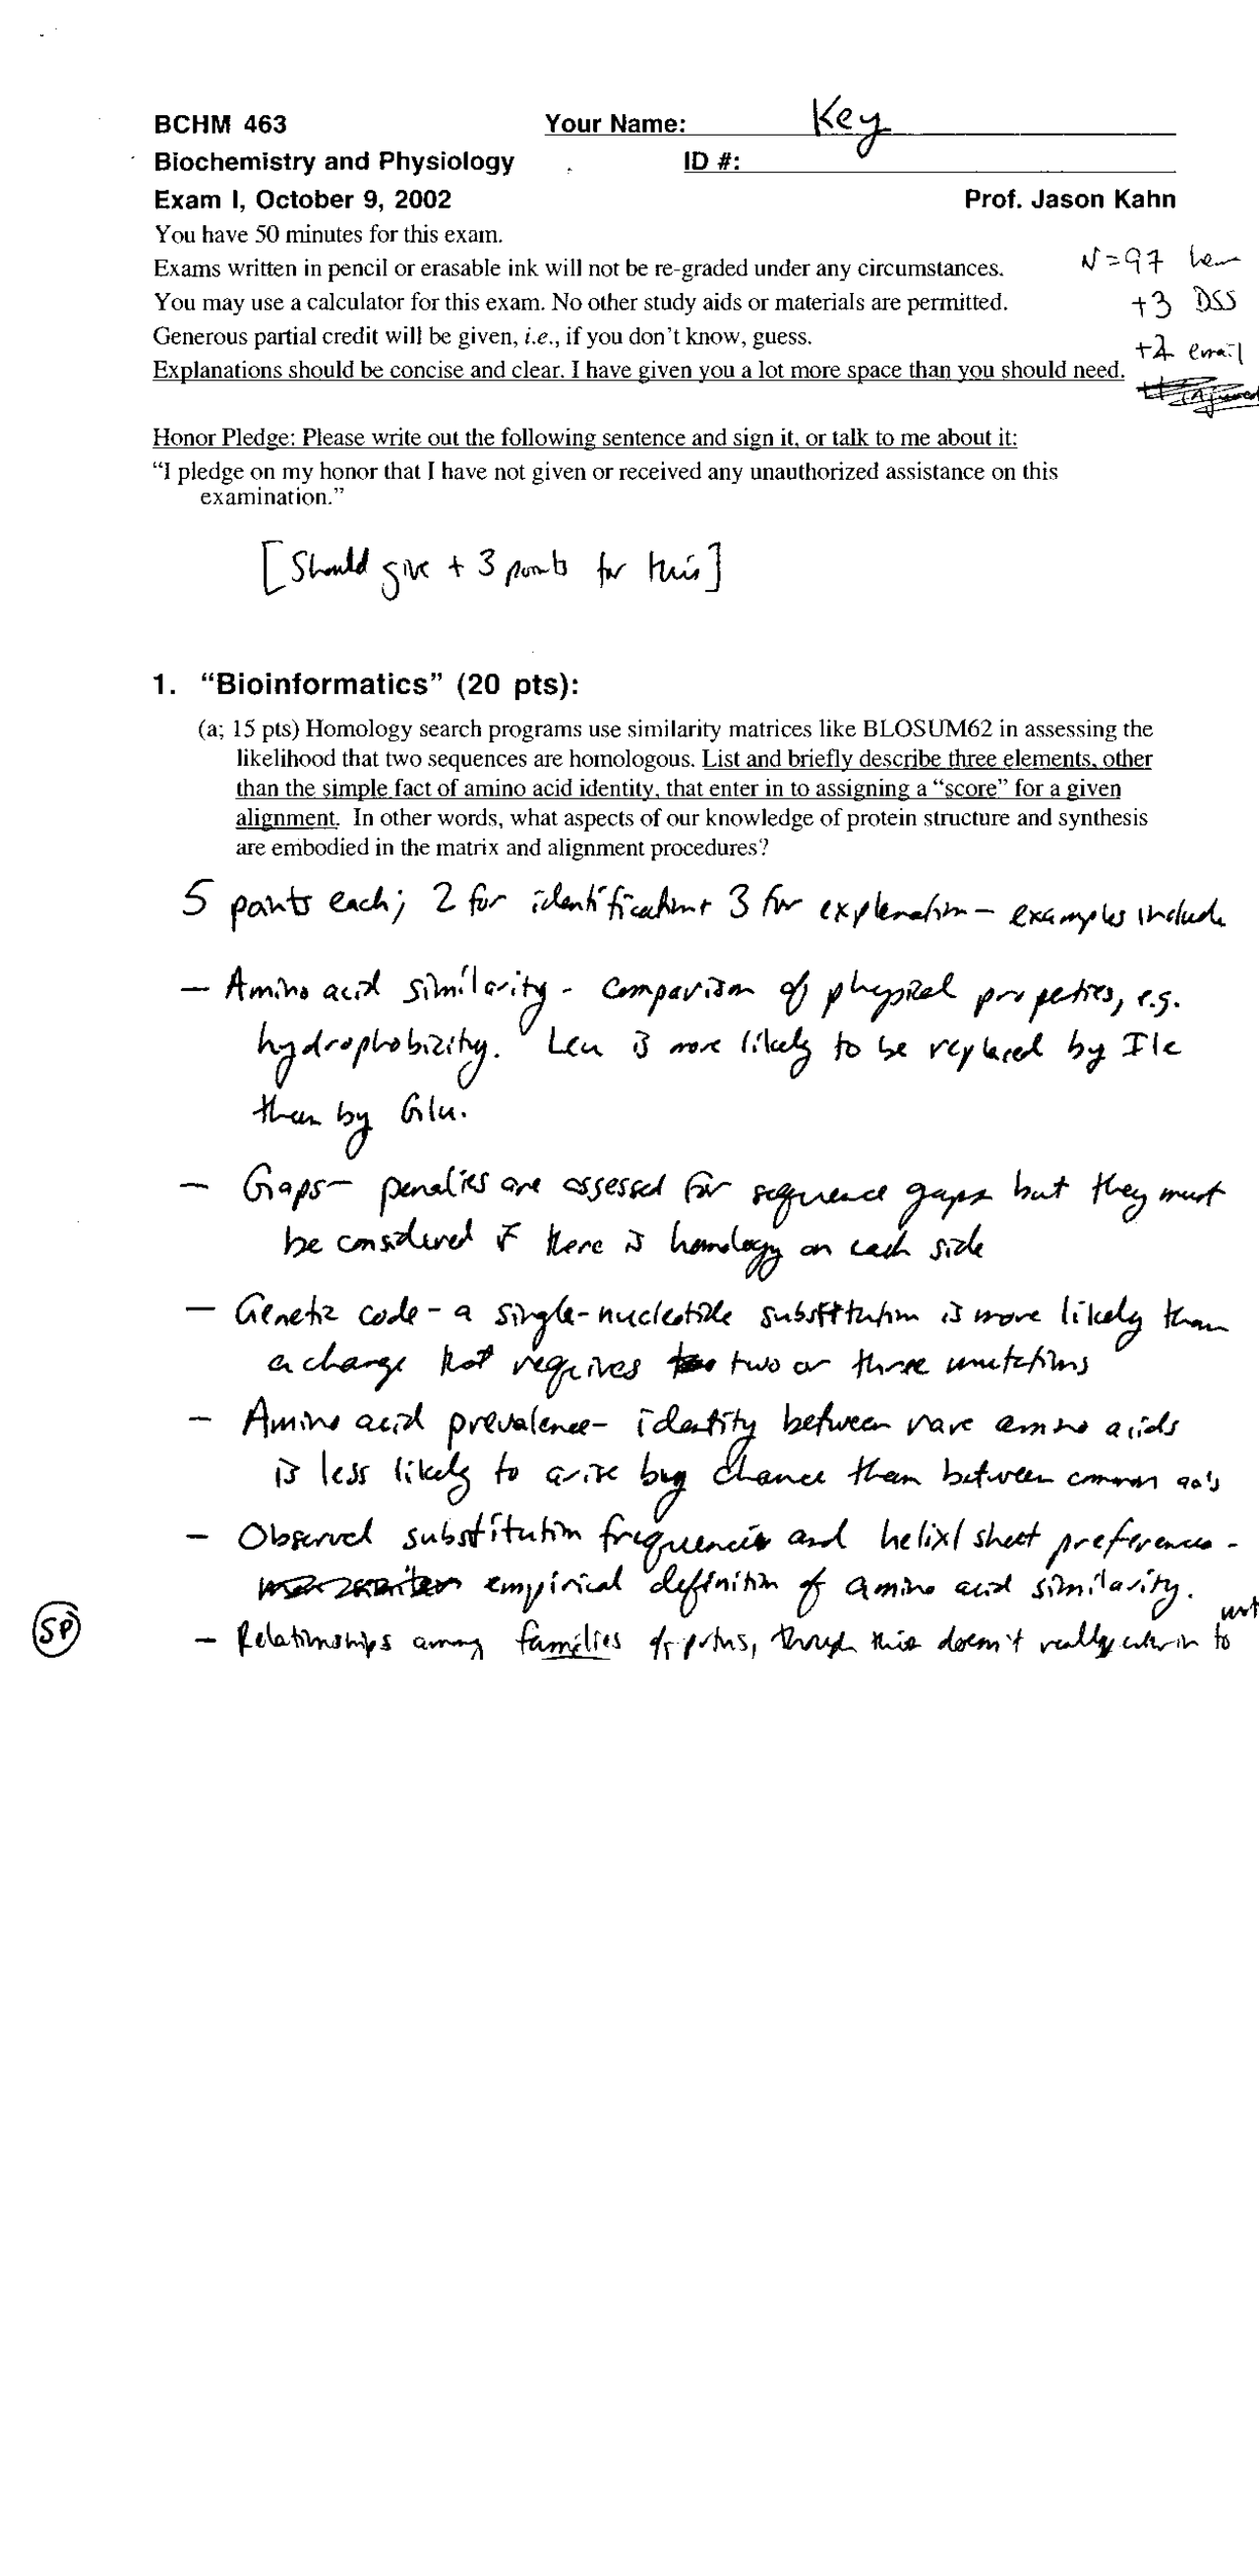 BCHM 463 Your Name: Key
Biochemistry and Physiology ID #:
Exam I, October 9, 2002 Prof. Jason Kahn
You have 50 minutes for this exam.
Exams written in pencil or erasable ink will not be re-graded under any circumstances. N=97
You may use a calculator for this exam. No other study aids or materials are permitted. +3 DSS
Generous partial credit will be given, i.e., if you don't know, guess. email
Explanations should be concise and clear. I have given you a lot more space than you should need.
Honor Pledge: Please write out the following sentence and sign it, or talk to me about it:
“I pledge on my honor that I have not given or received any unauthorized assistance on this
examination.”
[Should give +3 points for this]
1. “Bioinformatics” (20 pts):
(a; 15 pts) Homology search programs use similarity matrices like BLOSUM62 in assessing the
likelihood that two sequences are homologous. List and briefly describe three elements, other
than the simple fact of amino acid identity, that enter in to assigning a “score” for a given
alignment. In other words, what aspects of our knowledge of protein structure and synthesis
are embodied in the matrix and alignment procedures?
5 points each; 2 for identification + 3 for explanation – examples include
– Amino acid similarity - comparison of physical properties, e.g.
hydrophobicity. Leu is more likely to be replaced by Ile
than by Glu.
– Gaps – penalies are assessed for sequence gaps but they must
be considered if there is homology on each side
– Genetic code - a single-nucleotide substitution is more likely than
a change that requires two or three mutations
– Amino acid prevalence - identity between rare amino acids
is less likely to arise by chance than between common aa's
– Observed substitution frequencies and helix/sheet preferences -
empirical definition of amino acid similarity.
– Relationships among families of , though this doesn't really enter in to
SP